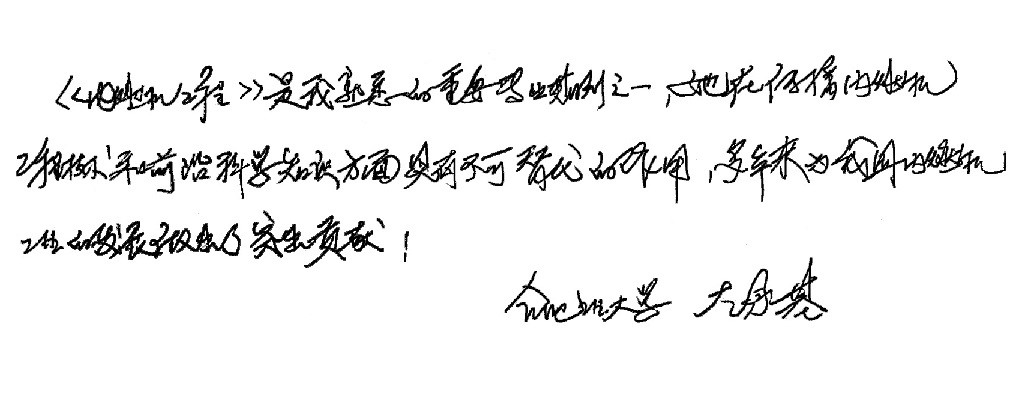 《内燃机工程》是我熟悉的重要专业期刊之一，她在传播内燃机
工程标准前沿科学知识方面具有不可替代的作用，多年来为我国内燃机
工业的发展做出了突出贡献！
合肥工业大学 左承基